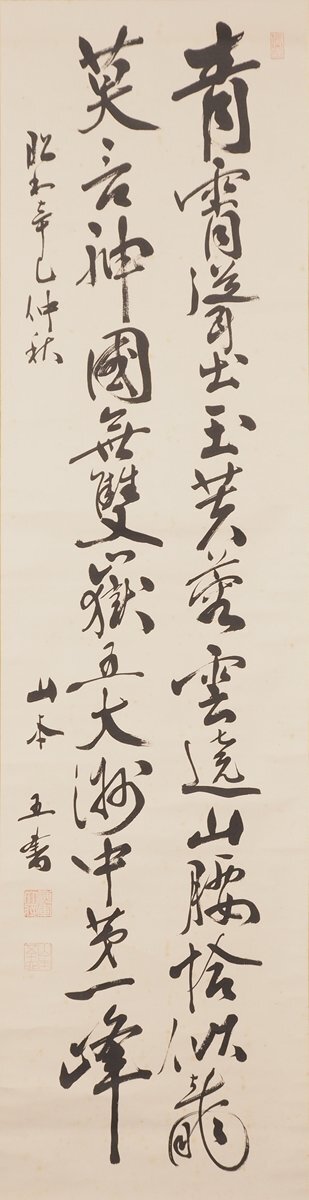 青霄聳出玉芙蓉雲遶山腰恰似龍
莫言神國無雙嶽五大洲中第一峰
昭和辛巳仲秋 山本 五書